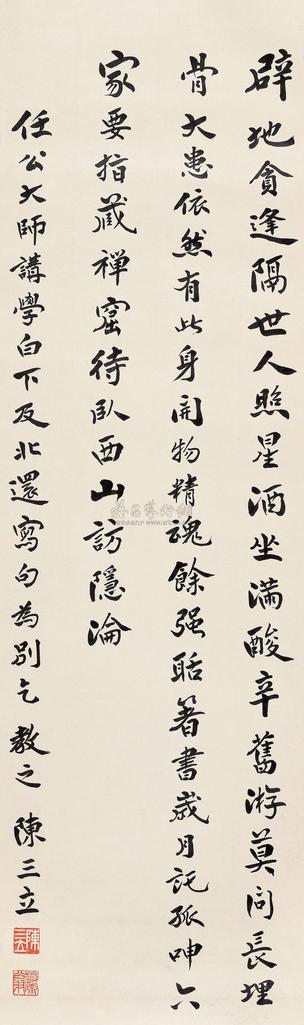 辟地貪逢隔世人照星酒坐滿酸辛舊游莫问長埋
骨大患依然有此身開物精魂餘强聒著書歲月託孤呻六
家要指藏禅窟待臥西山訪隱淪
任公大師講學白下及北還寫句為別乞教之陳三立